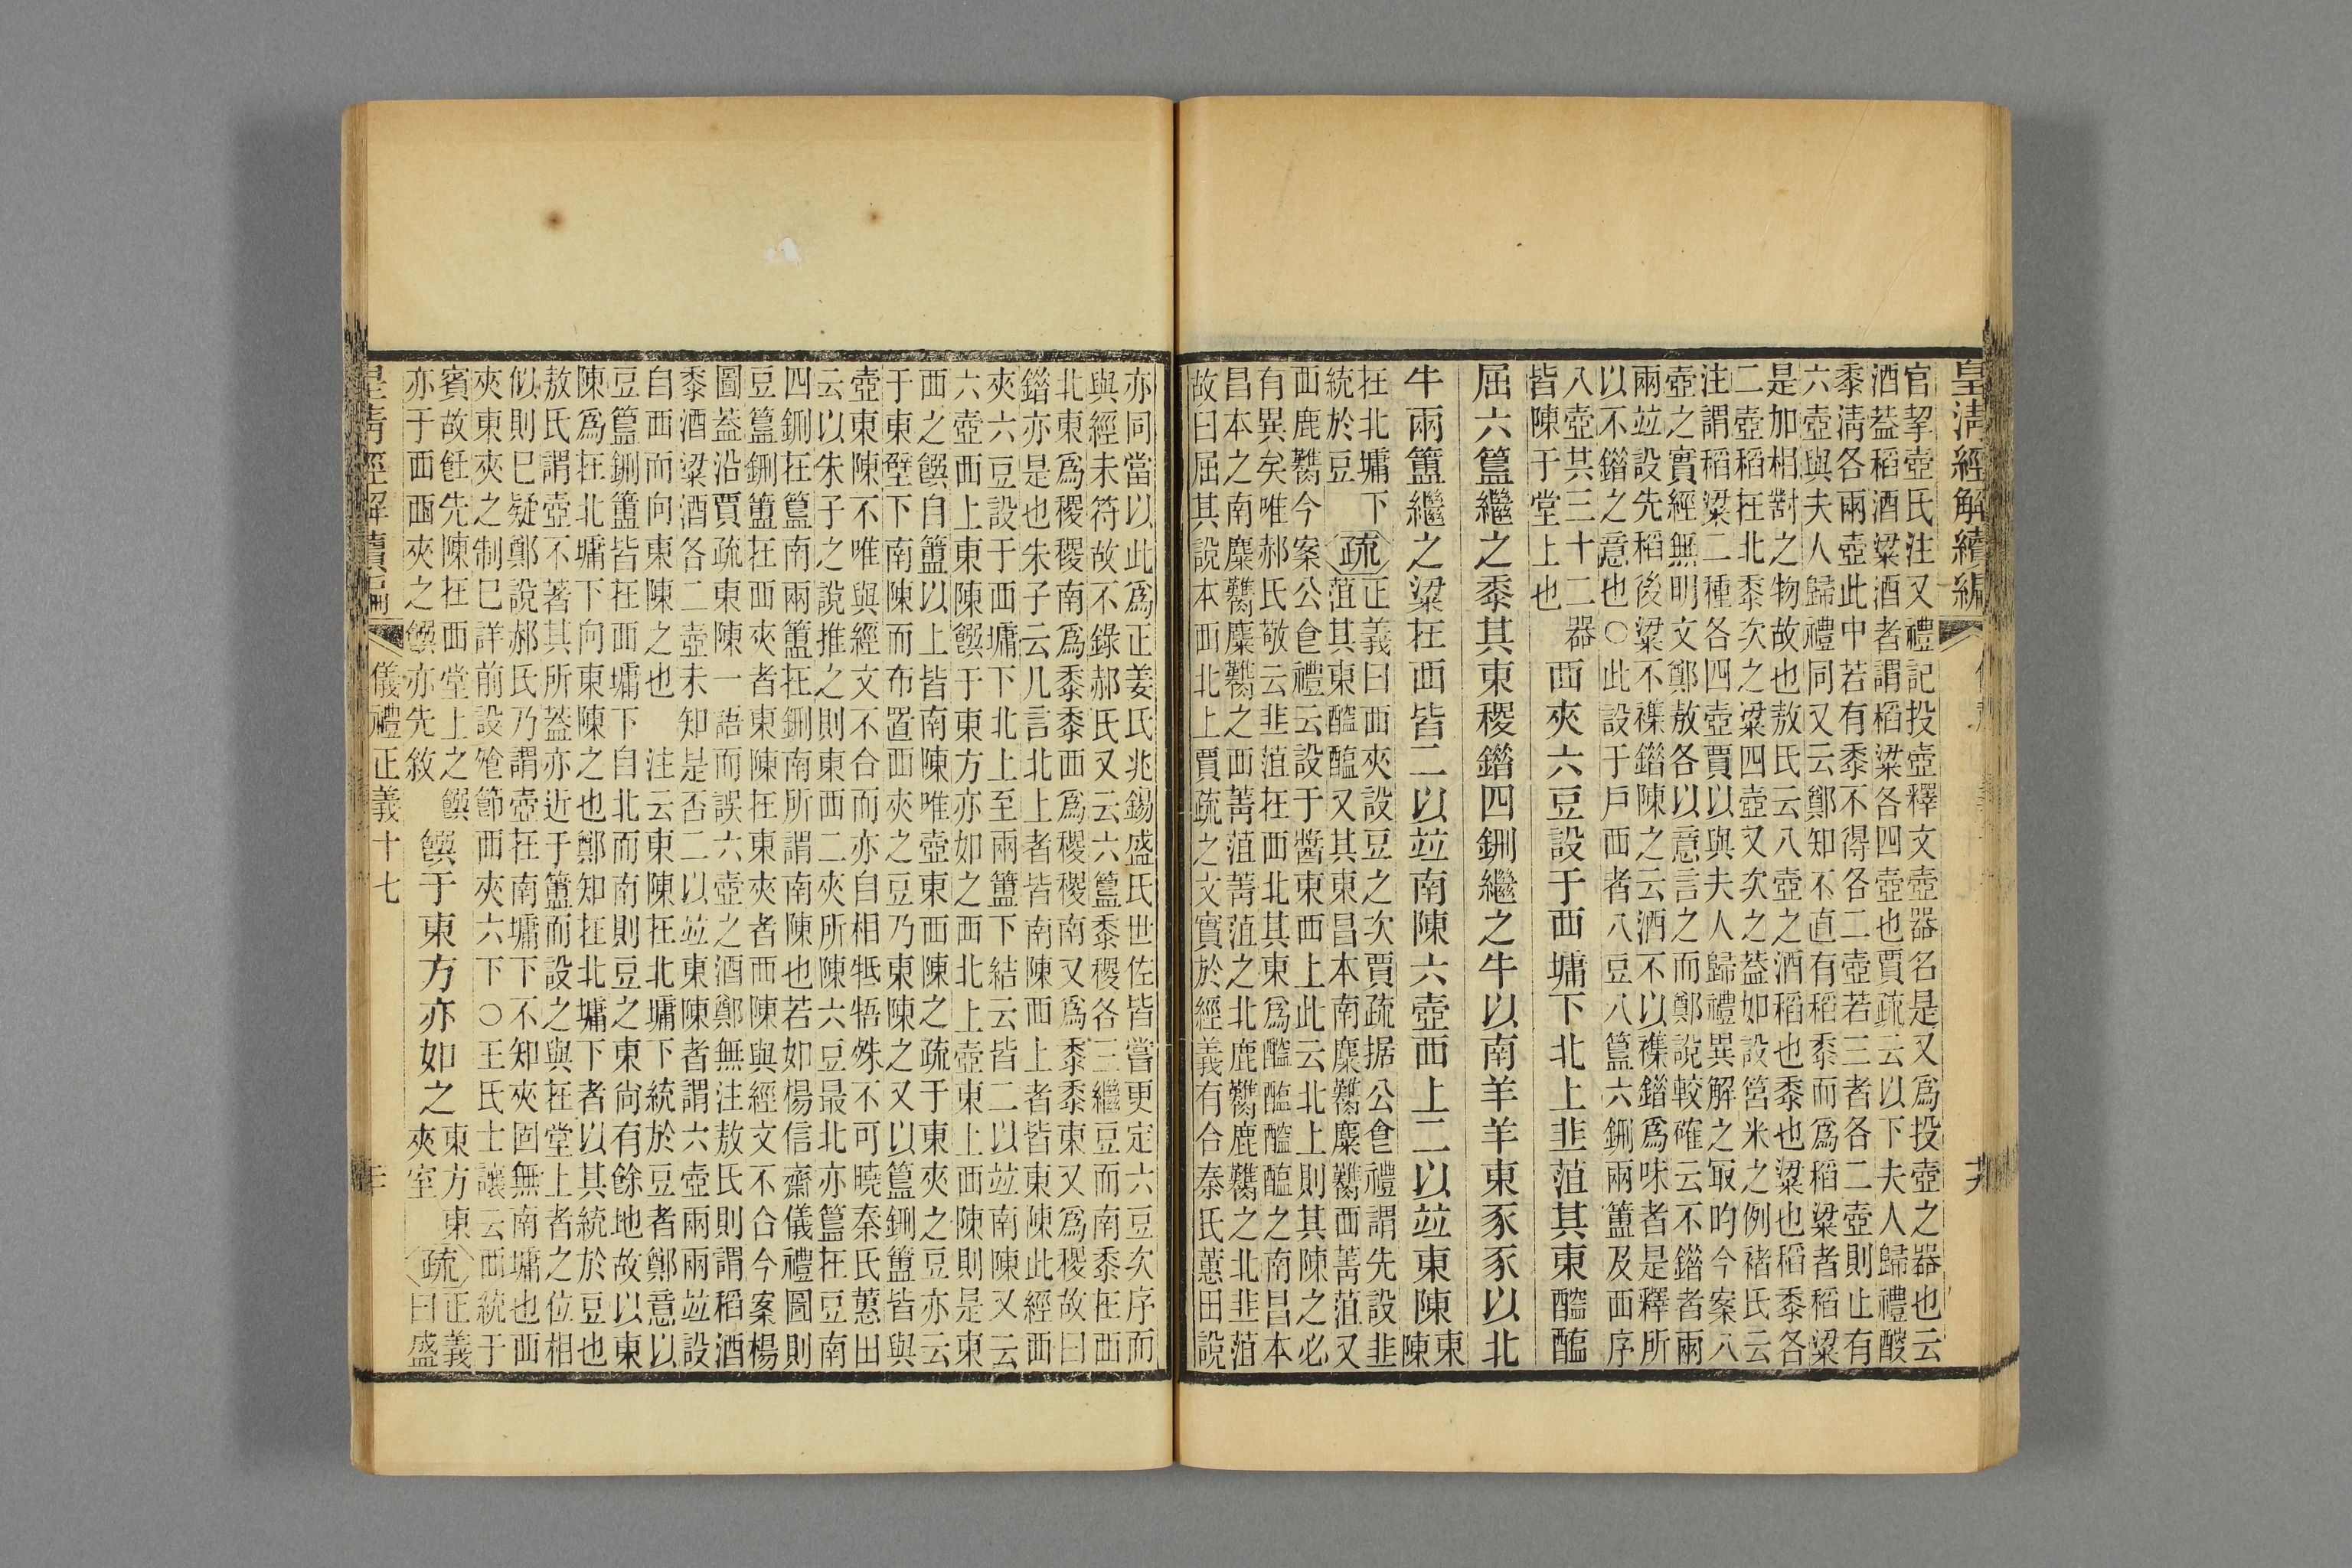 皇淸經解續編
官挈壺氏注又禮記投壺釋文壺器名是又爲投壺之器也云
酒葢稻酒粱酒者謂稻粱各四壺也賈疏云以下夫人歸禮醙
黍淸各兩壺此中若有黍不得各二壺若三者各二壺則止有
六壺與夫人歸禮同又云鄭知不直有稻黍而爲稻粱者稻粱
是加相對之物故也敖氏云八壺之酒稻也黍也粱也稻黍各
二壺稻在北黍次之粱四壺又次之葢如設筥米之例褚氏云
注謂稻粱二種各四壺賈以與夫人歸禮異解之㝡昀今案八
壺之實經無明文鄭敖各以意言之而鄭說較確云不錯者兩
兩竝設先稻後粱不襍錯陳之云酒不以襍錯爲味者是釋所
以不錯之意也○此設于戶西者八豆八簋六鉶兩簠及西序
八壺共三十二器
皆陳于堂上也
西夾六豆設于西墉下北上韭菹其東醯醢
屈六簋繼之黍其東稷錯四鉶繼之牛以南羊羊東豕豕以北
牛兩簠繼之粱在西皆二以竝南陳六壺西上二以竝東陳東陳
在北墉下
統於豆
疏正義曰西夾設豆之次賈疏据公食禮謂先設韭
菹其東醯醢又其東昌本南麋臡麋臡西菁菹又
西鹿臡今案公食禮云設于醬東西上此云北上則其陳之必
有異矣唯郝氏敬云韭菹在西北其東爲醯醢醯醢之南昌本
昌本之南麋臡麋臡之西菁菹菁菹之北鹿臡鹿臡之北韭菹
故曰屈其說本西北上賈疏之文實於經義有合秦氏蕙田說
亦同當以此爲正姜氏兆錫盛氏世佐皆嘗更定六豆次序而
與經未符故不錄郝氏又云六簋黍稷各三繼豆而南黍在西
北東爲稷稷南爲黍黍西爲稷稷南又爲黍黍東又爲稷故曰
錯亦是也朱子云凡言北上者皆南陳西上者皆東陳此經西
夾六豆設于西墉下北上至兩簠下結云皆二以竝南陳又云
六壺西上東陳饌于東方亦如之西北上壺東上西陳則是東
西之饌自簠以上皆南陳唯壺東西陳之疏于東夾之豆亦云
于東壁下南陳而布置西夾之豆乃東陳之又以簋鉶簠皆與
壺東陳不唯與經文不合而亦自相牴牾殊不可曉秦氏蕙田
云以朱子之說推之則東西二夾所陳六豆最北亦簋在豆南
四鉶在簋南兩簠在鉶南所謂南陳也若如楊信齋儀禮圖則
豆簋鉶簠在西夾者東陳在東夾者西陳與經文不合今案楊
圖葢沿賈疏東陳一語而誤六壺之酒鄭無注敖氏則謂稻酒
黍酒粱酒各二壺未知是否二以竝東陳者謂六壺兩兩竝設
自西而向東陳之也 注云東陳在北墉下統於豆者鄭意以
豆簋鉶簠皆在西墉下自北而南則豆之東尙有餘地故以東
陳爲在北墉下向東陳之也鄭知在北墉下者以其統於豆也
敖氏謂壺不著其所葢亦近于簠而設之與在堂上者之位相
似則已疑鄭說郝氏乃謂壺在南墉下不知夾固無南墉也西
夾東夾之制已詳前設飧節西夾六下○王氏士讓云西統于
賓故飪先陳在西堂上之饌
亦于西西夾之饌亦先敘
饌于東方亦如之
東方東
夾室
疏正義
曰盛
皇淸經解續編
儀禮正義十七